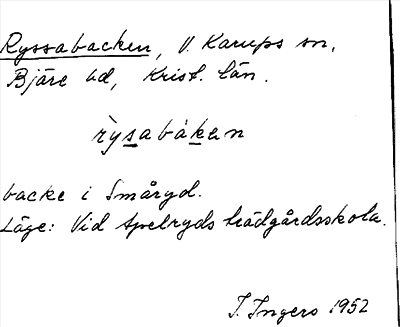 Ryssabacken, V. Karups sn,
Bjäre hd, Krist. län.
rysabákan
backe i Småryd.
Läge: Vid Apelryds trädgårdsskola.
I. Ingers 1952